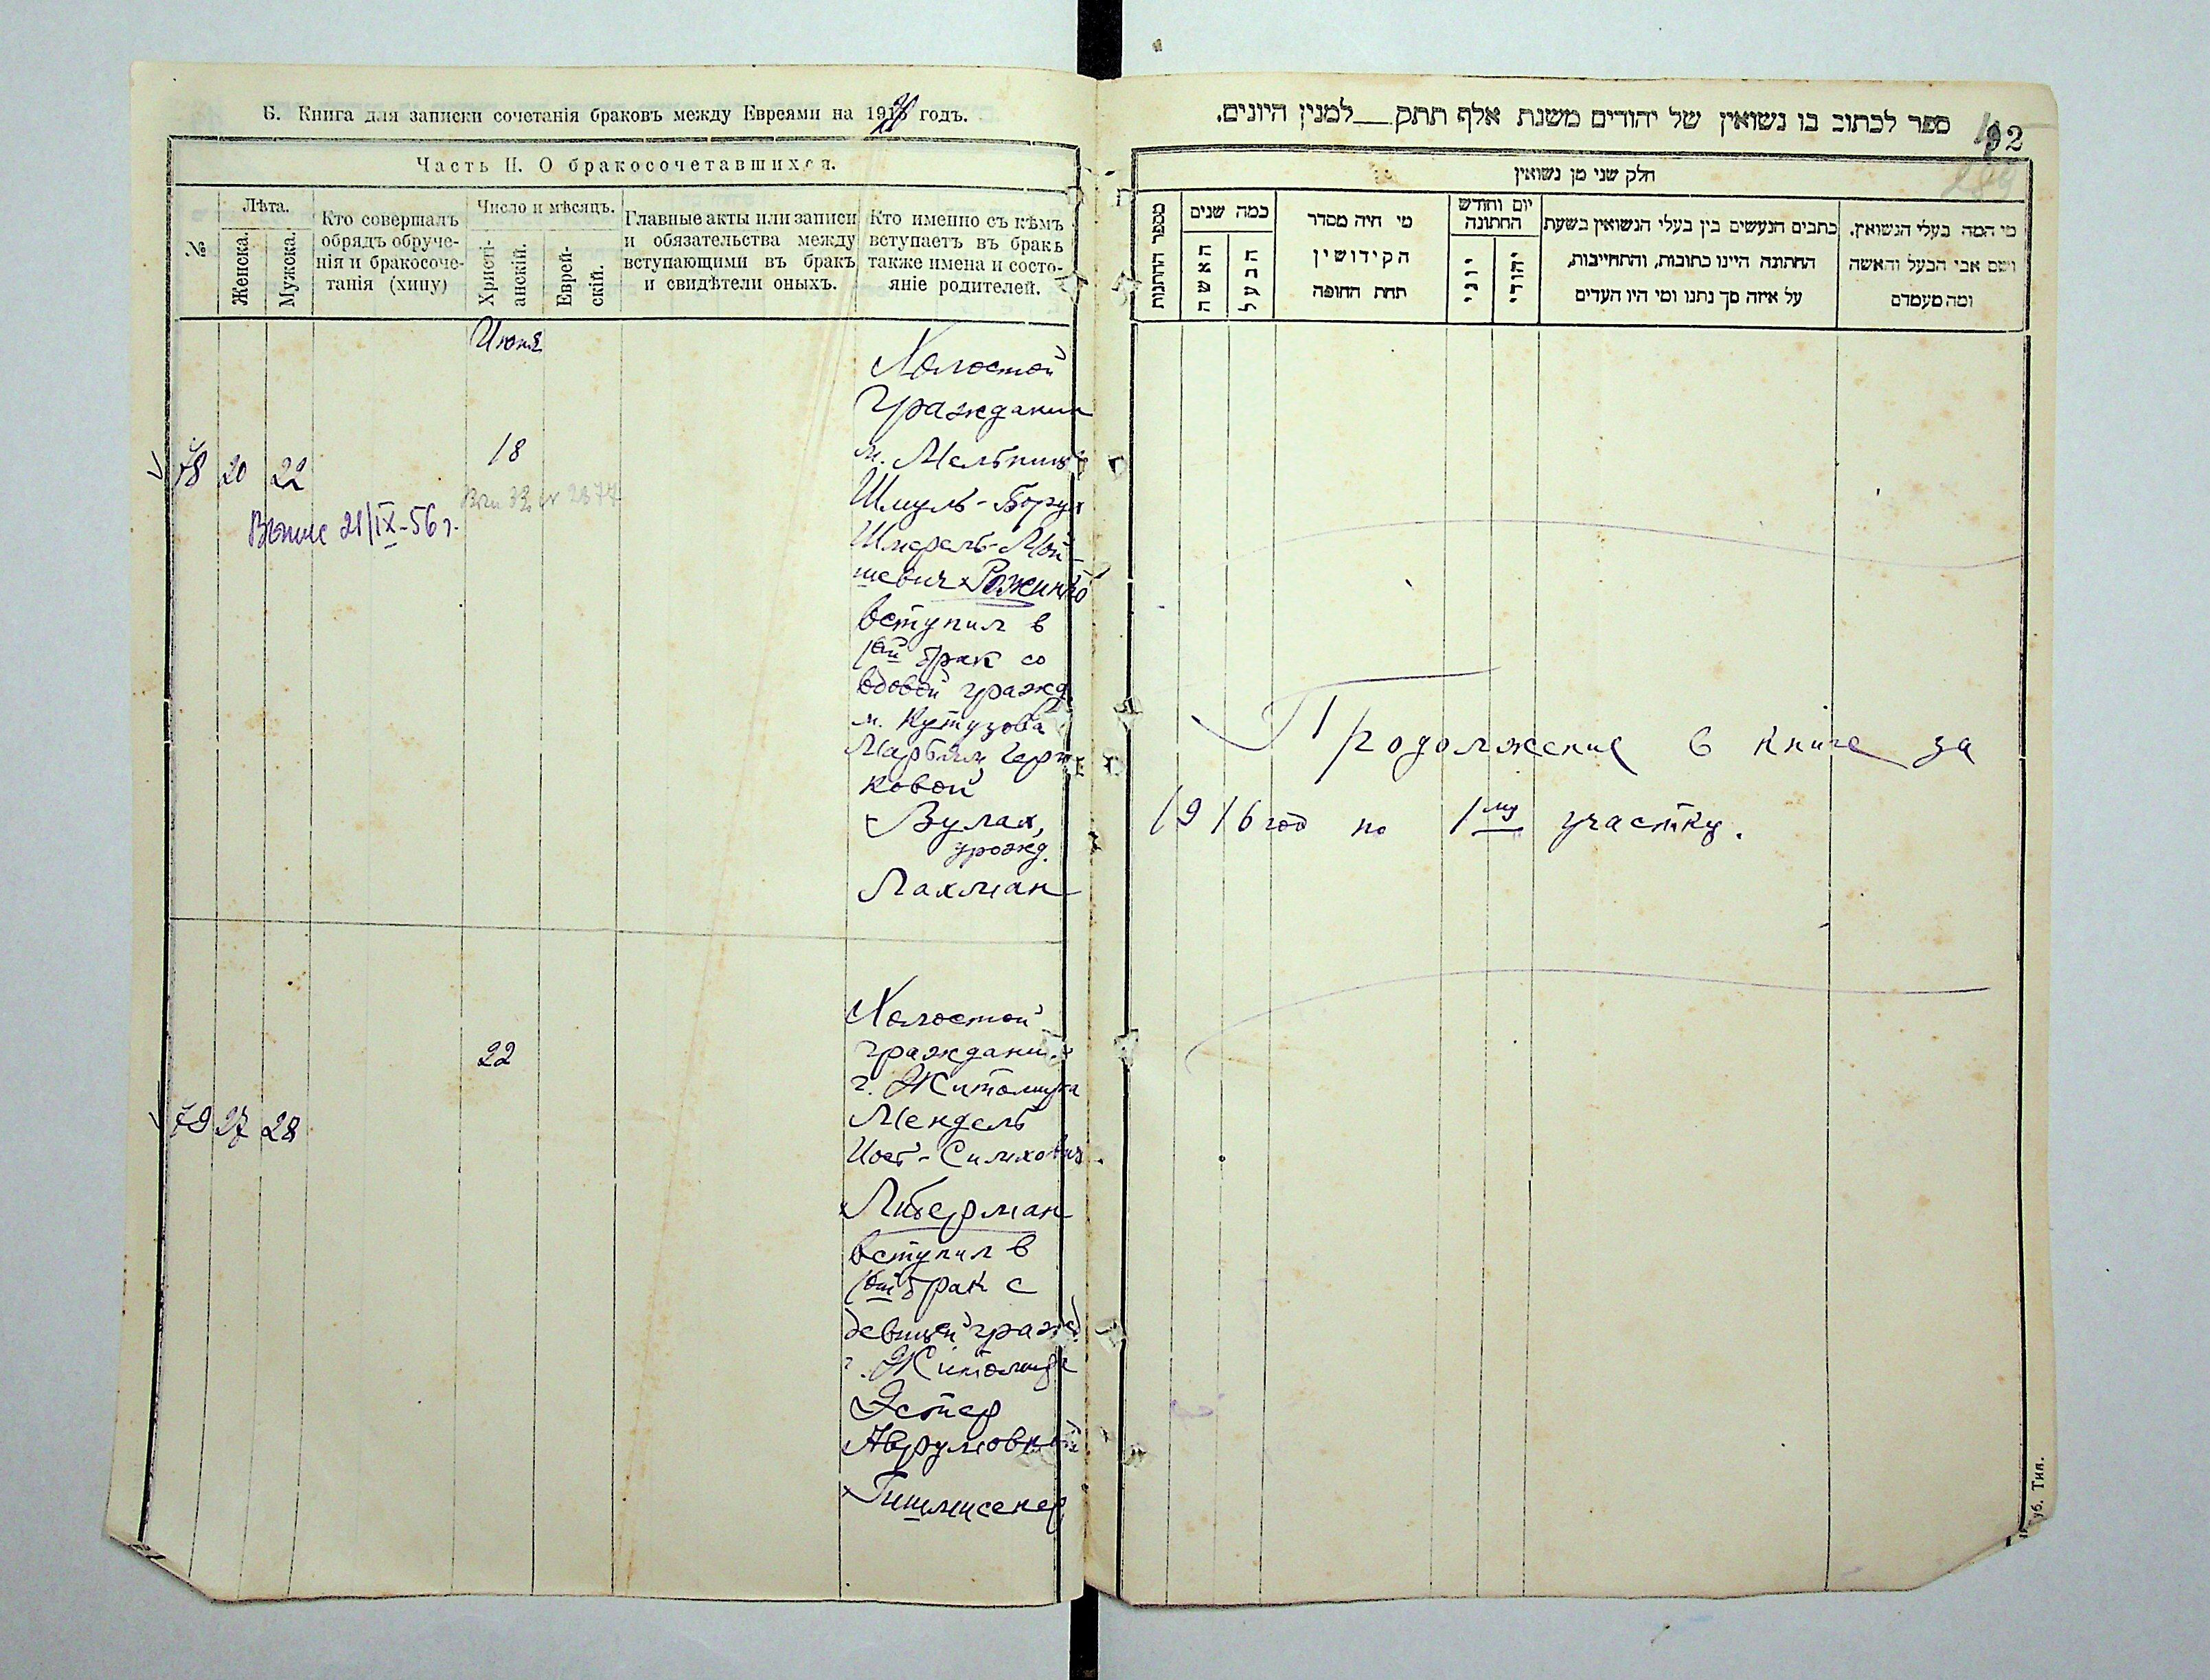 Б. Книга для записки сочетанія браковъ между Евреями на 191 годъ.
Часть II. О бракосочетавшихся.
№
Лѣта.
Женска.
Мужска.
Кто совершалъ
обрядъ обруче-
нія и бракосоче-
танія (хипу)
Число и мѣсяцъ.
Христі-
анскій.
Еврей-
скій.
Главные акты или записи
и обязательства между
вступающими въ бракъ
и свидѣтели оныхъ.
Кто именно съ кѣмъ
вступаетъ въ бракъ
также имена и состо-
яніе родителей.
Июня
78 20 22
18
Выпис 21/IX-56 г.
Холостой
Гражданин
м.
Шмуль-Борух
Шмерель-Мой-
шевич
вступил в
1ый брак со
вдовой гражд.
м. Кутузова
Марьям Герш
ковой
Вулах,
урожд.
Лахман
79 27 28
22
Холостой
гражданин
г. Житомира
Мендель
Иось-
Либерман
вступил в
1ый брак с
девицей гражд.
г. Житомира
Эстер
Аврумовной
ספר לכתוב בו נשואין של יהודים משנת אלף תתק__למנין היונים.
92
חלק שני מן נשואין
מספר החתנות
כמה שנים
האשה
הבעל
מי היה מסדר
הקידושין
תחת החופה
יום וחודש
החתונה
יוני
יהודי
כתבים הנעשים בין בעלי הנשואין בשעת
החתונה היינו כתובות, והתחייבות,
על איזה סך נתנו ומי היו העדים
מי המה בעלי הנשואין,
ושם אבי הבעל והאשה
ומה מעמדם
Продолжение в книге за
1916 год по 1му участку.
Губ. Тип.